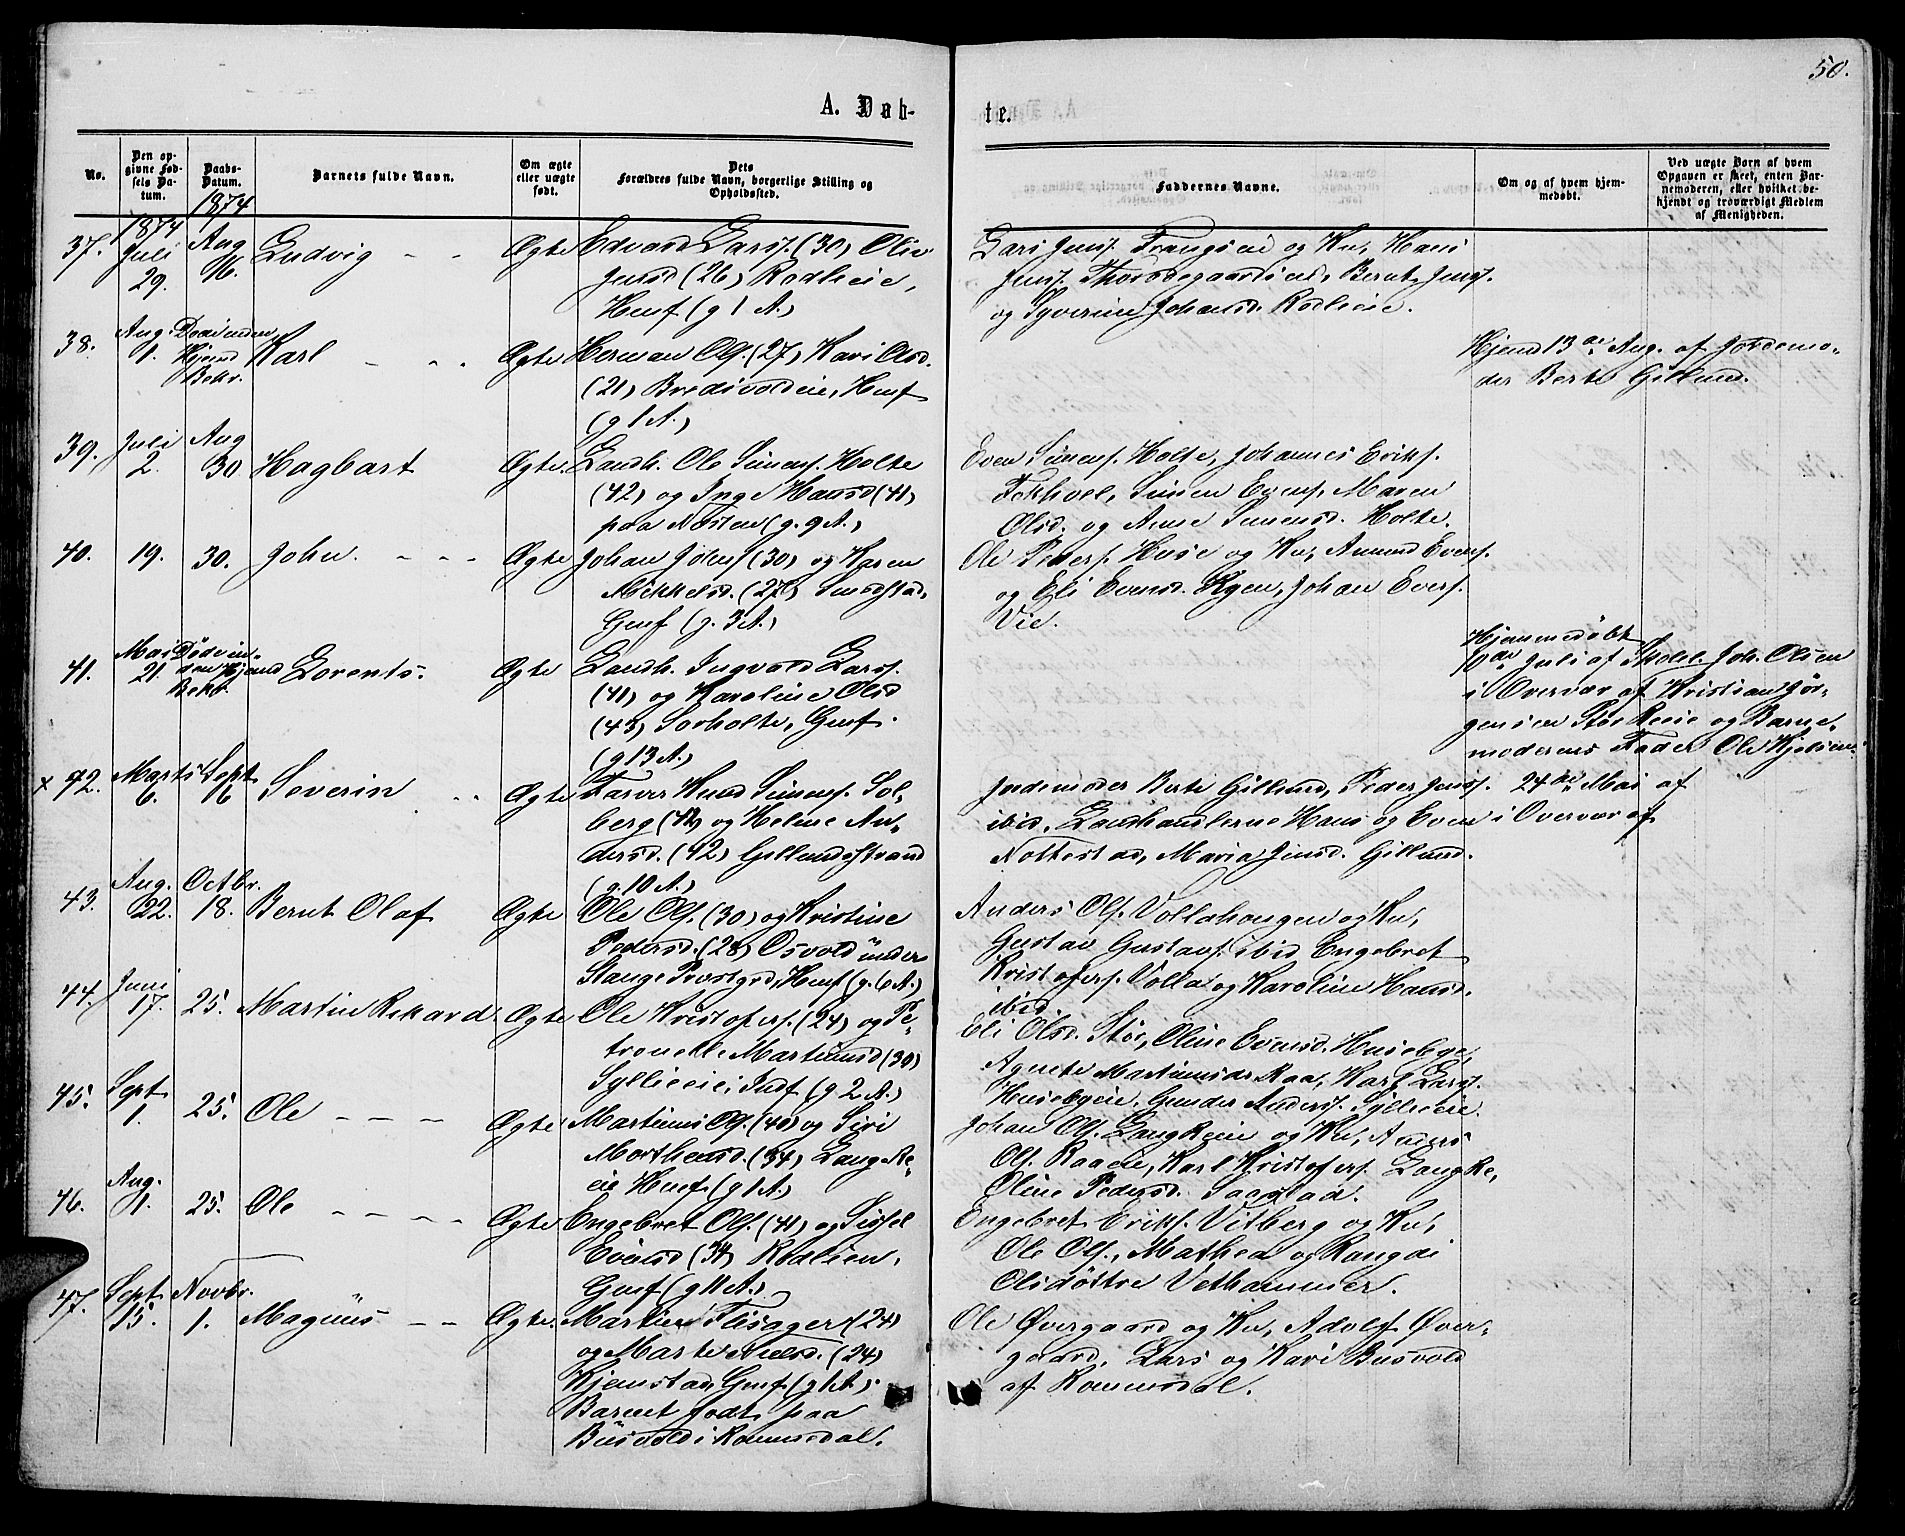 50.
A. Døb-
te.
No.
Den op-
givne Fød-
sels Da-
tum.
Daabs-
Datum.
Barnets fulde Navn.
Om ægte
eller uægte
født.
Dets
Forældres fulde Navn, borgerlige Stilling og
Opholdssted.
Faddernes Navne.
Om og af hvem hjem-
medøbt.
Ved uægte Børn af hvem
Opgaven er skeet, enten Bar-
nemoderen, eller hvilket be-
kjendt og troværdigt Medlem
af Menigheden.
1874
1874
37.
Juli
29.
Aug
16.
Ludvig - -
Ægte
Edvard Larsf. (30) Olia
Jensd (26) Rodlieie,
Husf (g 1 A.)
Lars Jensf. Trangseie og Ku, Hans
Jensf. Thorsdegaardseie, Bernt Jensf.
og Syverine Johansd. Rodlieie.
38.
Aug.
1.
Død inden
Hjemd
Bekr.
Karl - -
Ægte
Herman Olsf. (27) Kari Olsd.
(21) Bredivoldeie, Husf
(g 1 A.)
Hjemd 13de Aug. af Jordemo-
der Berte Gillund.
39.
Juli
2.
Aug
30.
Hagbart
Ægte.
Landh. Ole Simensf. Holte
(42) og Inge Hansd (41)
paa Næsten (g. 9 A.)
Even Simensf. Holte, Johannes Eriksf.
Simen Evensf. Maren
Olsd. og Anne Simensd. Holte.
40.
19.
30.
John. - - -
Ægte
Johan Johnsf (30) og Karen
Mikkelsd. (27) Smedstad,
Gmf (g. 3 A.)
Ole Pedersf. Huse og Ku, Amund Evensf.
og Eli Evensd. Kgen, Johan Eversf.
Vie.
41.
Mai
21.
Død in-
den Hjemd
Bekr.
Lorents.
Ægte
Landh. Ingvald Larsf.
(41) og Karoline Olsd
(43) Sorholte, Gmf.
(g 13 A.)
Hjemmedøbt
6de Juli af Skolel. Joh. Olsen
i Overvær af Kristian Jør-
gensen Støe Reeie og Barne-
moderens Fader Ole Kjelsen.
x 42.
Marts
6.
Sept
16
Severin - -
Ægte
Farver Knud Simensf. Sol-
berg (42) og Helene An-
dersd. (42) Gillundstrand
(g. 10 A.)
Jordemoder Berte Gillund, Peder Jensf.
ibid. Landhandlerne Hans og Even
Nottestad, Maria Jensd. Gillund.
24de Mai af
i Overvær af
43.
Aug.
22.
Octbr.
18.
Bernt Olaf
Ægte
Ole Olsf. (30) og Kristine
Pedersd. (28) Osvold under
Stange Prestgrd, Husf (g. 6 A.)
Anders Olsf. Vollahaugen og Ku,
Gustav Gustavsf. ibid Engebret
Kristofersf. Volla og Karoline Hansd.
ibid.
44.
Juni
17.
25.
Martin Rikard.
Ægte
Ole Kristofersf. (24) og Pe-
tronelle Martinusd (30)
Syllieeie, Indf (g 2 A.)
Eli Olsd. Støe, Oline Evensd. Husebye,
Agnete Martinusdr Raa, Karl Larsf.
Husebyeie, Gunder Andersf. Syllieeie
45.
Sept
1.
25.
Ole - - -
Ægte
Martinus Olsf. (40) og Siri
Mortensd. (34) Lang Re-
eie Husf. (g 1 A.)
Johan Olsf. Lang Reeie og Ku, Anders
Olsf. Raaeie, Karl Kristofersf. Lang Re,
Oline Pedersd. Saastad.
46.
Aug.
1.
25.
Ole - - - -
Ægte
Engebret Olsf. (41) og Sissel
Evensd (34) Rodlien,
Gmf (g 11 A.)
Engebret Eriksf. Vitberg og Ku,
Ole Olsf., Mathea og Rangdi
Olsdøttre Vethammer.
47.
Sept
15.
Novbr.
1.
Magnus - -
Ægte.
Martin Flisager (24)
og Marte Nielsd. (24)
Kjemstad, Gmf (g 1 A.)
Barnet født paa
Busvold i Romsedal.
Ole Øvergaard og Ku, Adolf Øver-
gaard, Lars og Kari Busvold
af Rommsdal.